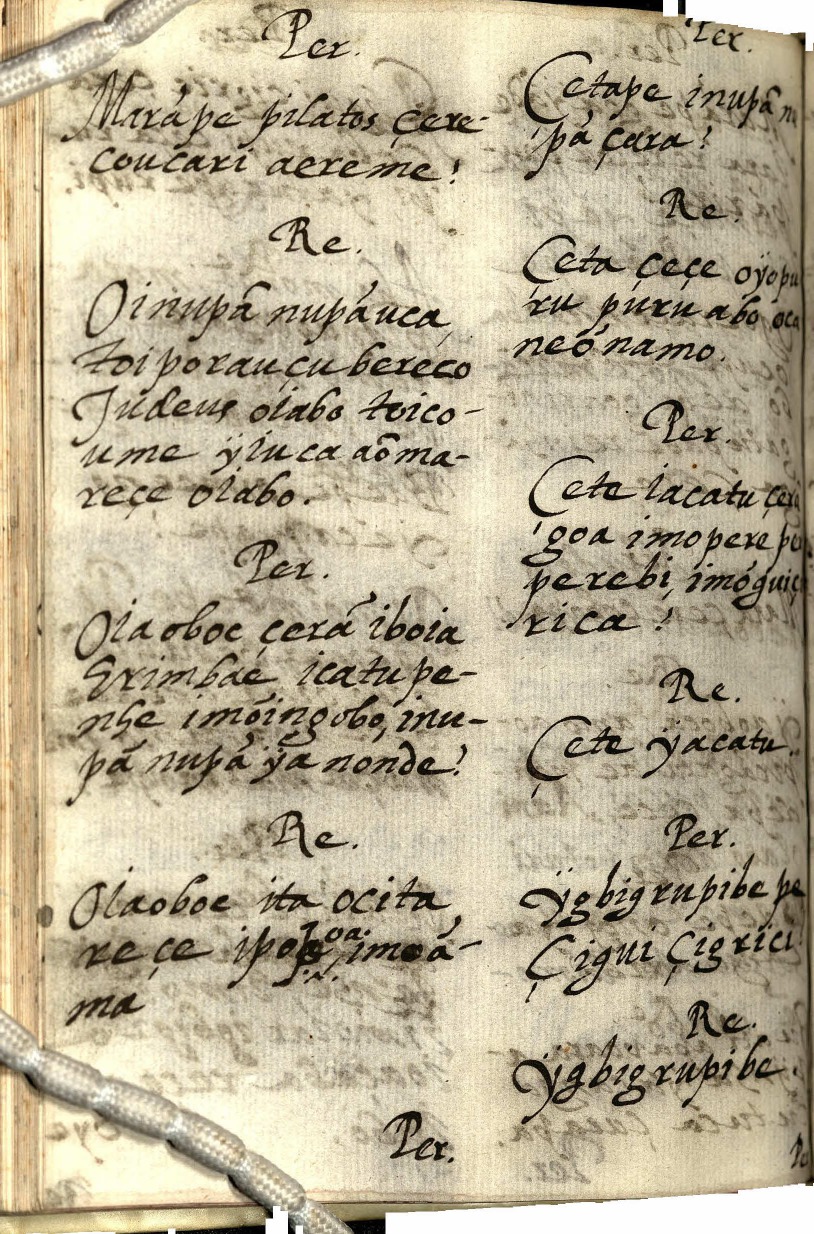 Per.
Marápe pilatos çere-
coucari aereme?
Re.
Oinupã nupáuca,
toiporauçubereco
Judeus oiabo toico-
ume ÿiuca aõma-
reçe oiabo.
Per.
Oiaoboe çerã iboia
Erimbae icatupe-
nhe imóingobo, inu-
pã nupã ÿa nonde?
Re.
Oiaoboe ita ocita
reçe imoã-
ma
Per.
Per.
Cetape inupã
pá çara?
Re.
Ceta çeçe
ru puru abo
neõnamo.
Per.
Cete iacatu
goa imopere
perebi,
rica?
Re.
Çete ÿacatu.
Per.
Ÿgbigrupibe pe
Çigui
Re.
Ÿgbigrupibe.